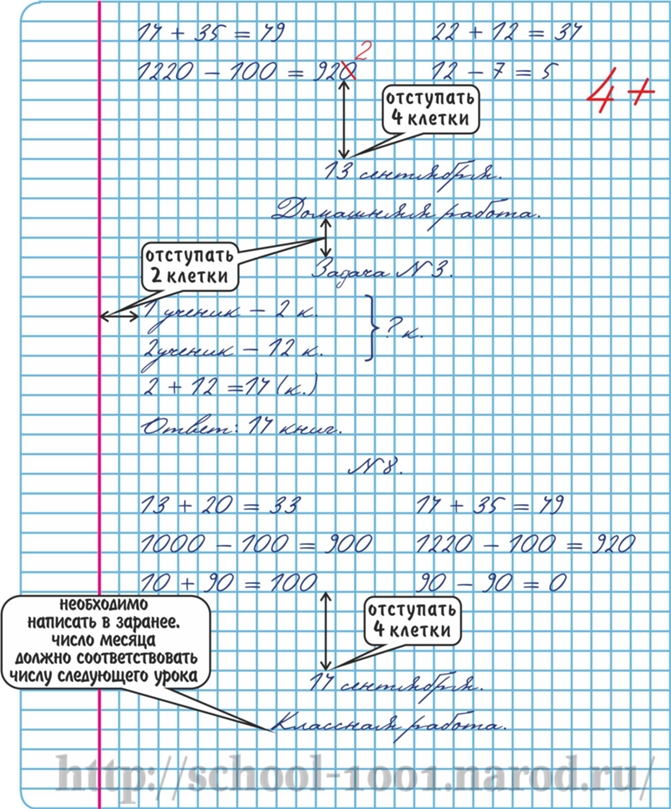 14 + 35 = 49 22 + 12 = 34
2
1220 - 100 = 920 12 - 7 = 5
4+
отступать
4 клетки
13 сентября.
Домашняя работа.
отступать
2 клетки
Задача №3.
1 ученик - 2 к.
2 ученик - 12 к.
} ? к.
2 + 12 = 14 (к.)
Ответ: 14 книг.
№8.
13 + 20 = 33 14 + 35 = 49
1000 - 100 = 900 1220 - 100 = 920
10 + 90 = 100 90 - 90 = 0
необходимо
написать в заранее.
число месяца
должно соответствовать
числу следующего урока
отступать
4 клетки
14 сентября.
Классная работа.
http://school-1001.narod.ru/